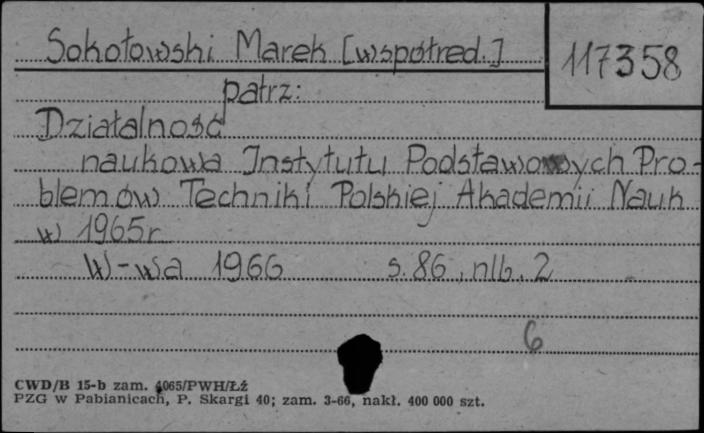 Sokołowski Marek [współred.]
117358
patrz:
Działalność
naukowa Instytutu Podstawowych Pro-
blemów Techniki Polskiej Akademii Nauk
w 1965 r
W-wa 1966 s. 86, nlb. 2
6
CWD/B 15-b zam. 4065/PWH/Łż
PZG w Pabianicach, P. Skargi 40; zam. 3-66, nakł. 400 000 szt.